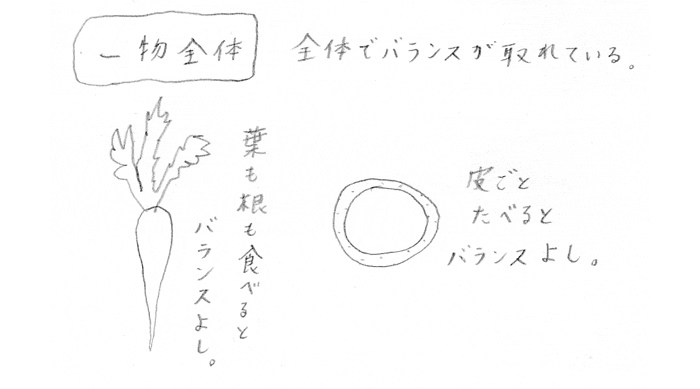 一物全体
全体でバランスが取れている。
葉も根も食べると
バランスよし。
皮ごと
たべると
バランスよし。